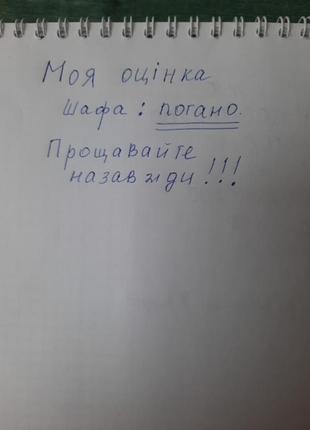 Моя оцінка
шафа : погано.
Прощавайте
назавжди !!!